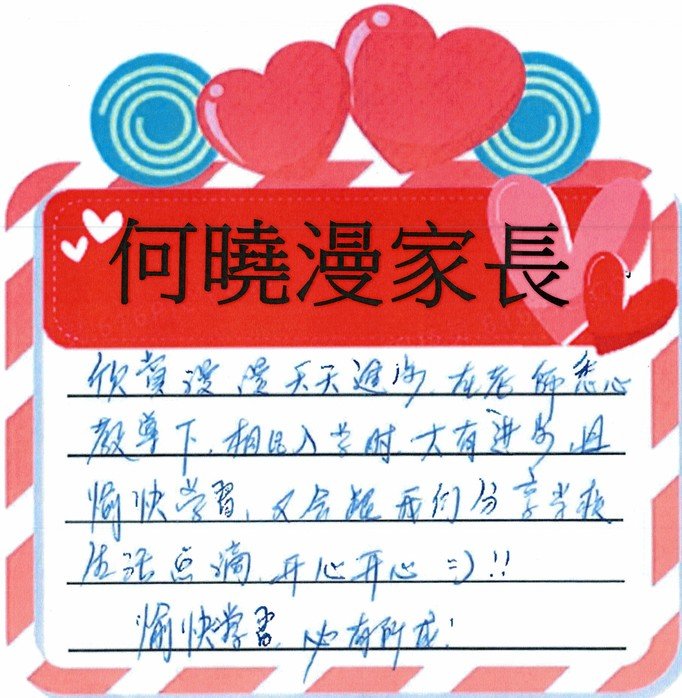 何曉漫家長
欣賞漫漫天天進步,在老師悉心
教導下,相比入学時,大有进步,且
愉快学習,又会跟我们分享学校
生活点滴,开心开心 =)!!
愉快学習,必有所成!